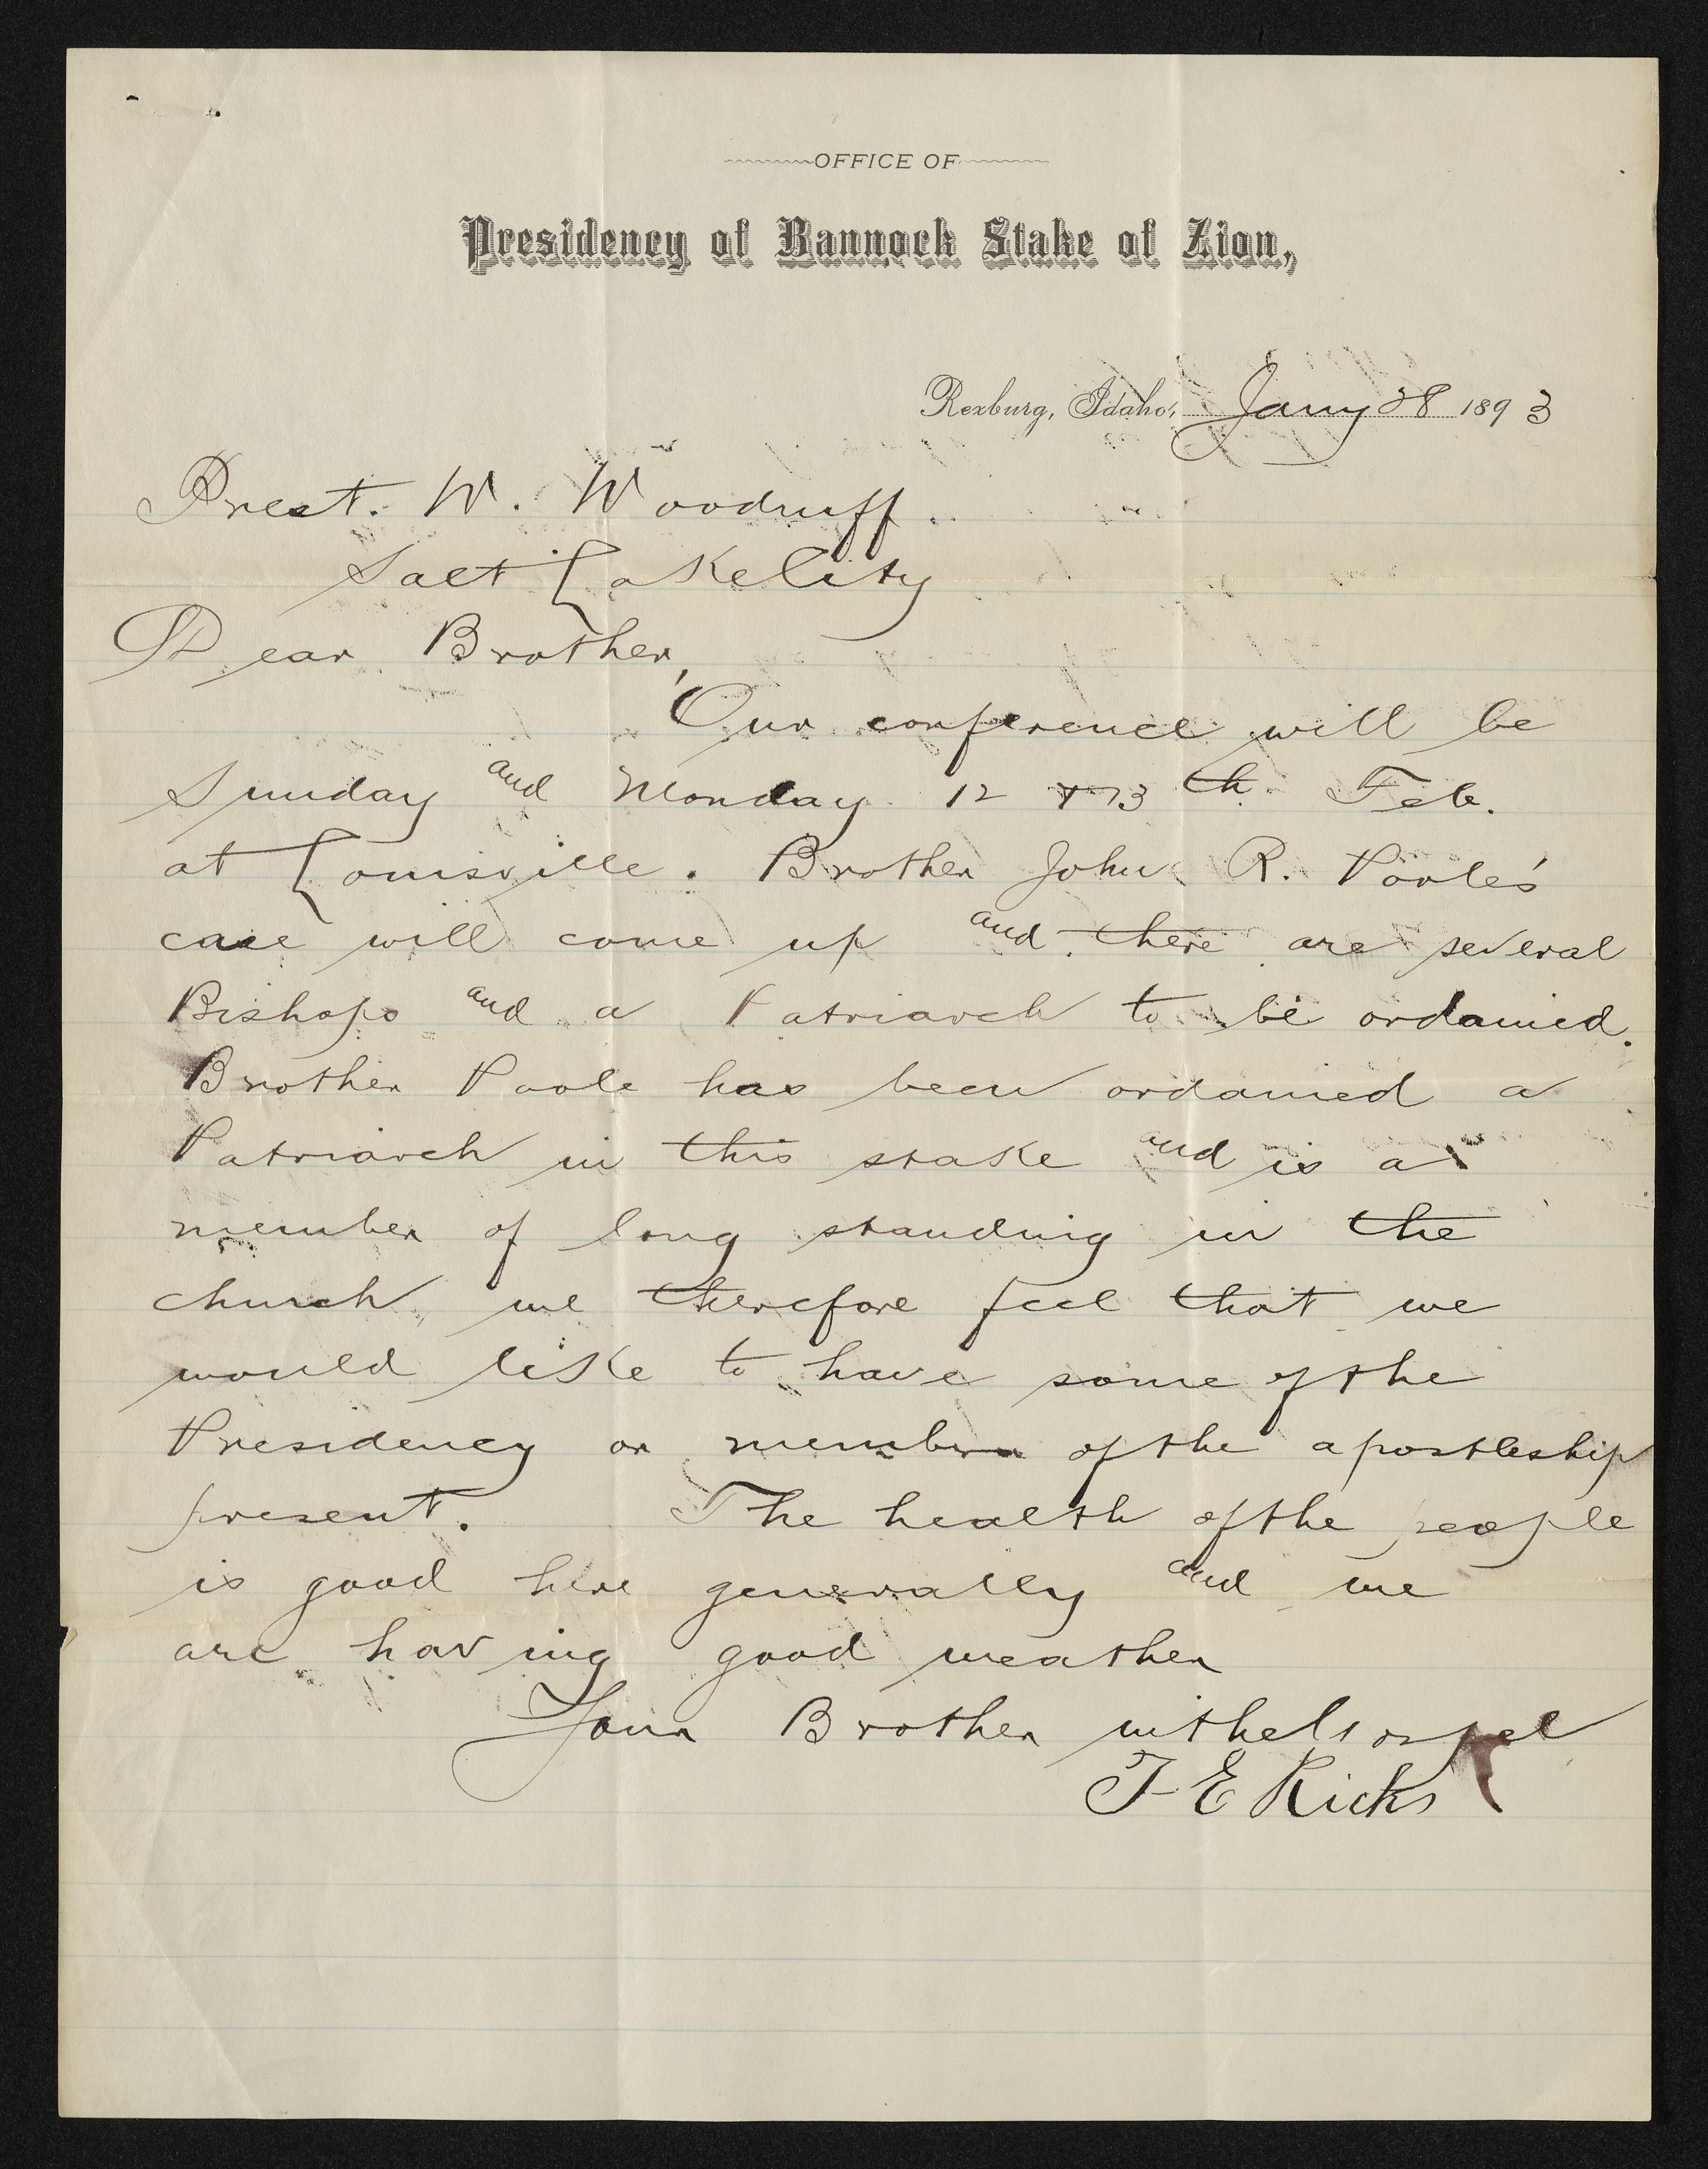 OFFICE OF
Presidency of Bannock Stake of Zion,
Rexburg, Idaho, Jany 28 1893
Prest. W. Woodruff.
Salt Lake City
Dear Brother,
Our conference will be
Sunday and Monday 12 & 13th Feb.
at Louisville. Brother John R. Poole's
case will come up and there are several
Bishops and a Patriarch to be ordained.
Brother Poole has been ordained a
Patriarch in this stake and is a
member of long standing in the
church, we therefore feel that we
would like to have some of the
Presidency or members of the apostleship
present. The health of the people
is good here generally and we
are having good weather
Your Brother in the Gospel
T E Ricks